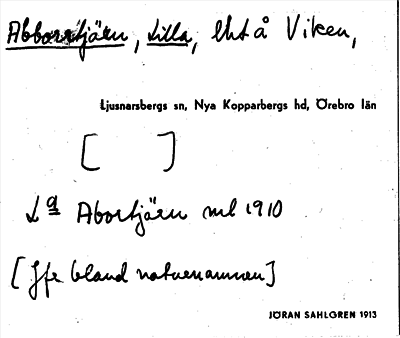 Abborrtjärn, Lilla, Ekt å Viken,
Ljusnarsbergs sn, Nya Kopparbergs hd, Örebro län
[ ]
La Abortjärn ml 1910
[Jfr bland naturnamnen]
JÖRAN SAHLGREN 1913